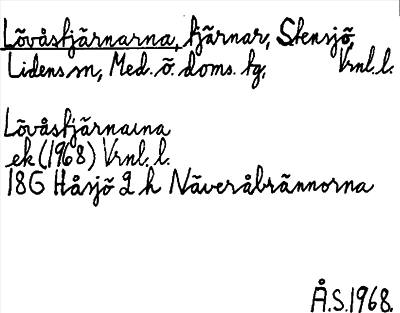 Lövåstjärnarna, tjärnar, Stensjö,
Lidens sn, Med. ö. doms. tg, Vrnl. l.
Lövåstjärnarna
ek (1968) Vrnl. l.
18G Håsjö 2 h Näveråbrännorna
Å.S.1968.